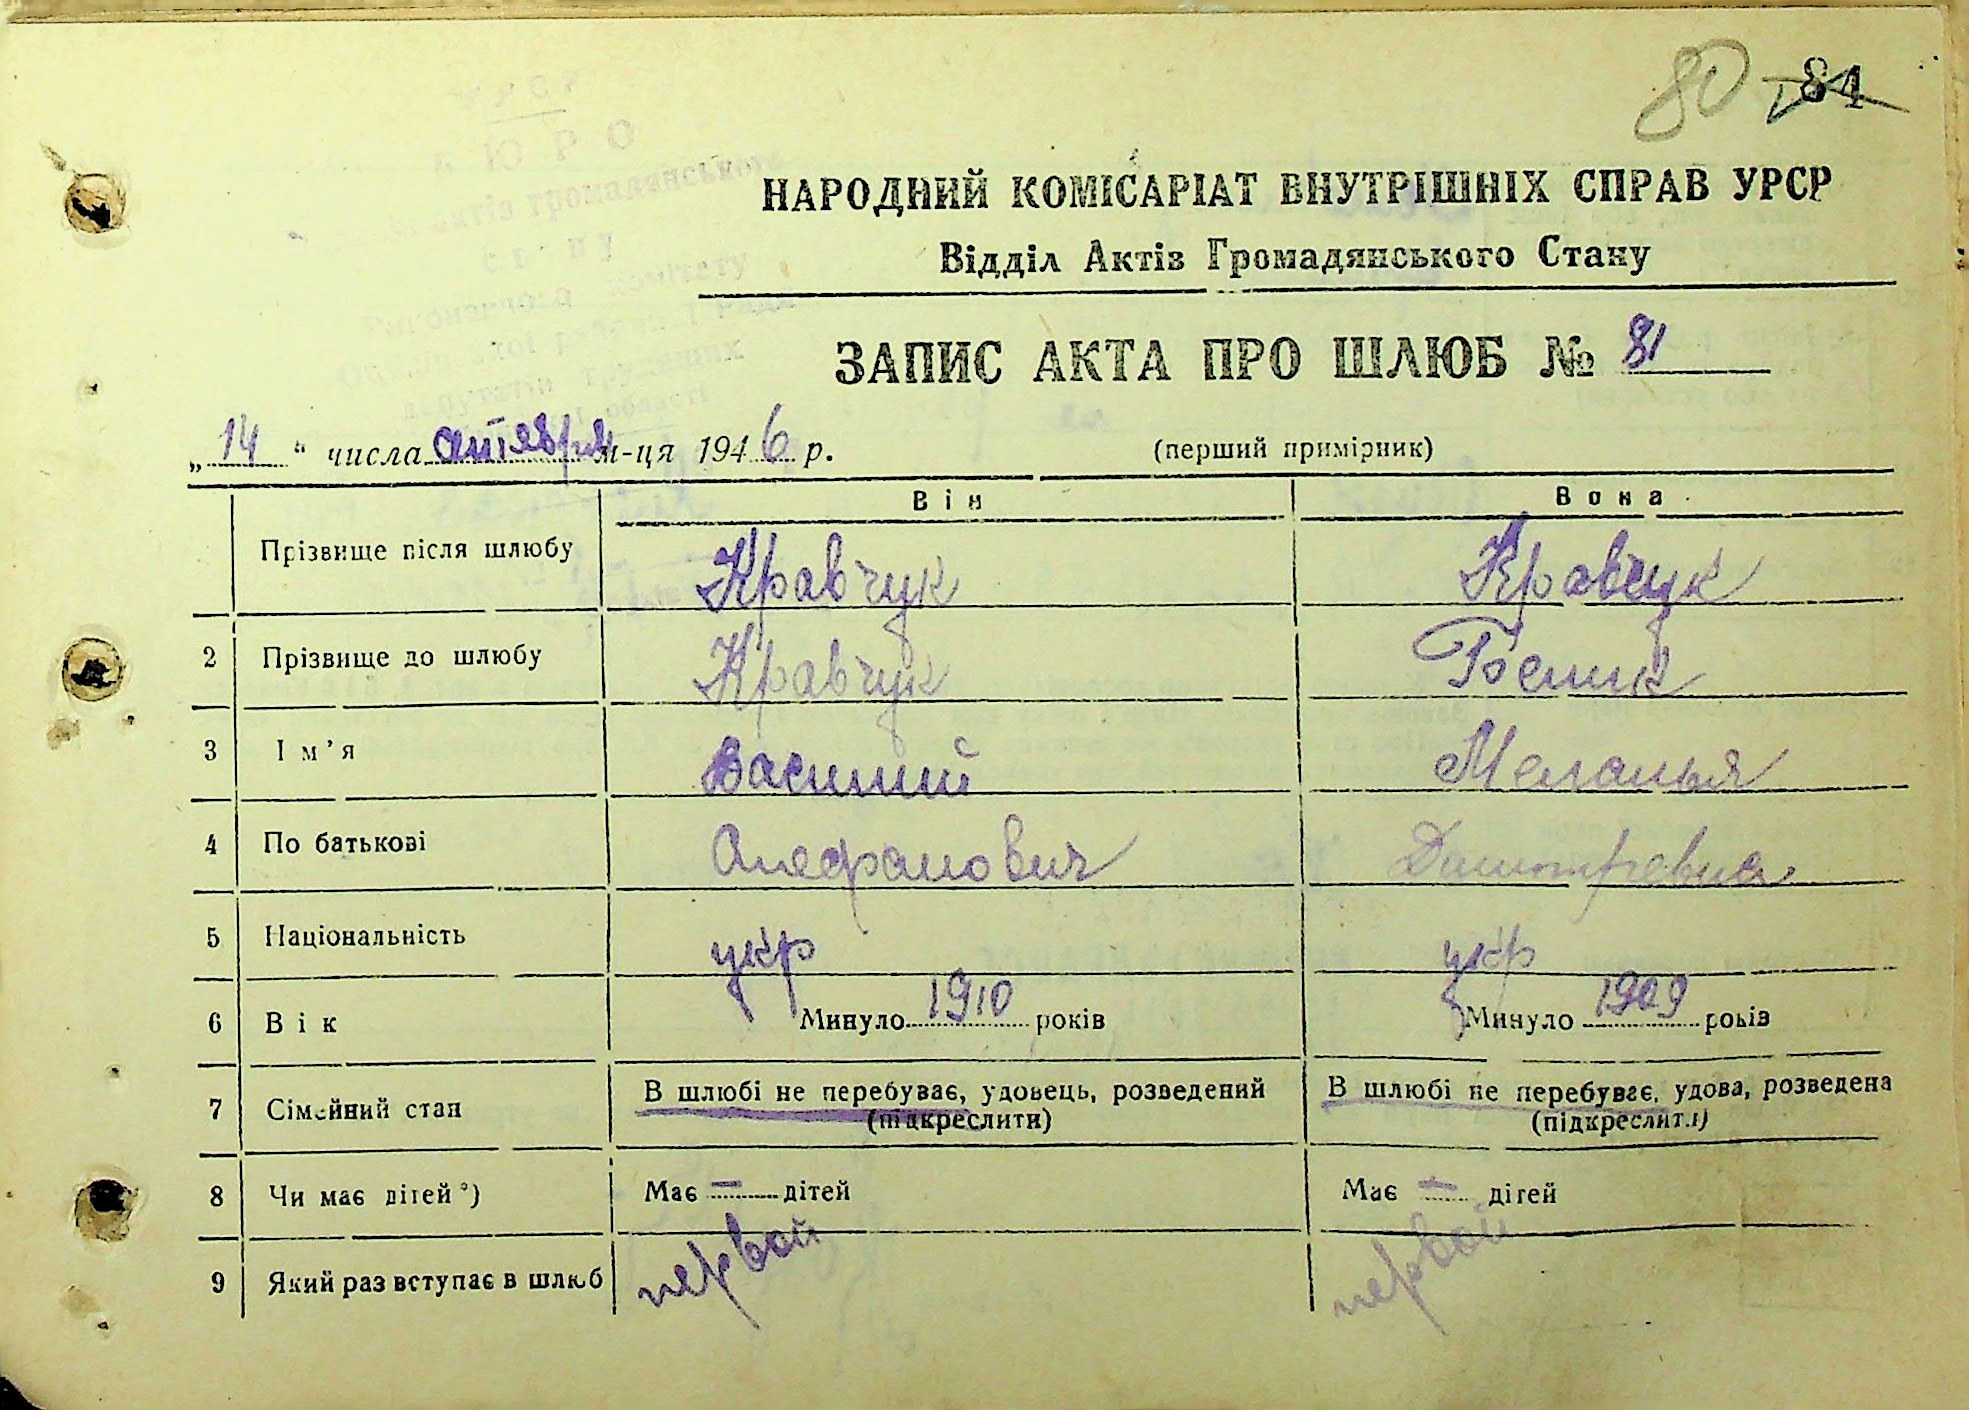 80 84
НАРОДНИЙ КОМІСАРІАТ ВНУТРІШНІХ СПРАВ УРСР
Відділ Актів Громадянського Стану
ЗАПИС АКТА ПРО ШЛЮБ № 81
„14“ числа октября м-ця 1946 р. (перший примірник)
Він Вона
Прізвище після шлюбу Кравчук Кравчук
2 Прізвище до шлюбу Кравчук
3 Ім'я Василий Меланья
4 По батькові
5 Національність укр укр
6 Вік Минуло 1910 років Минуло 1909 років
7 Сімейний стан В шлюбі не перебуває, удовець, розведений В шлюбі не перебуває, удова, розведена
(підкреслити) (підкреслити)
8 Чи має дітей*) Має — дітей Має — дітей
9 Який раз вступає в шлюб первой первой